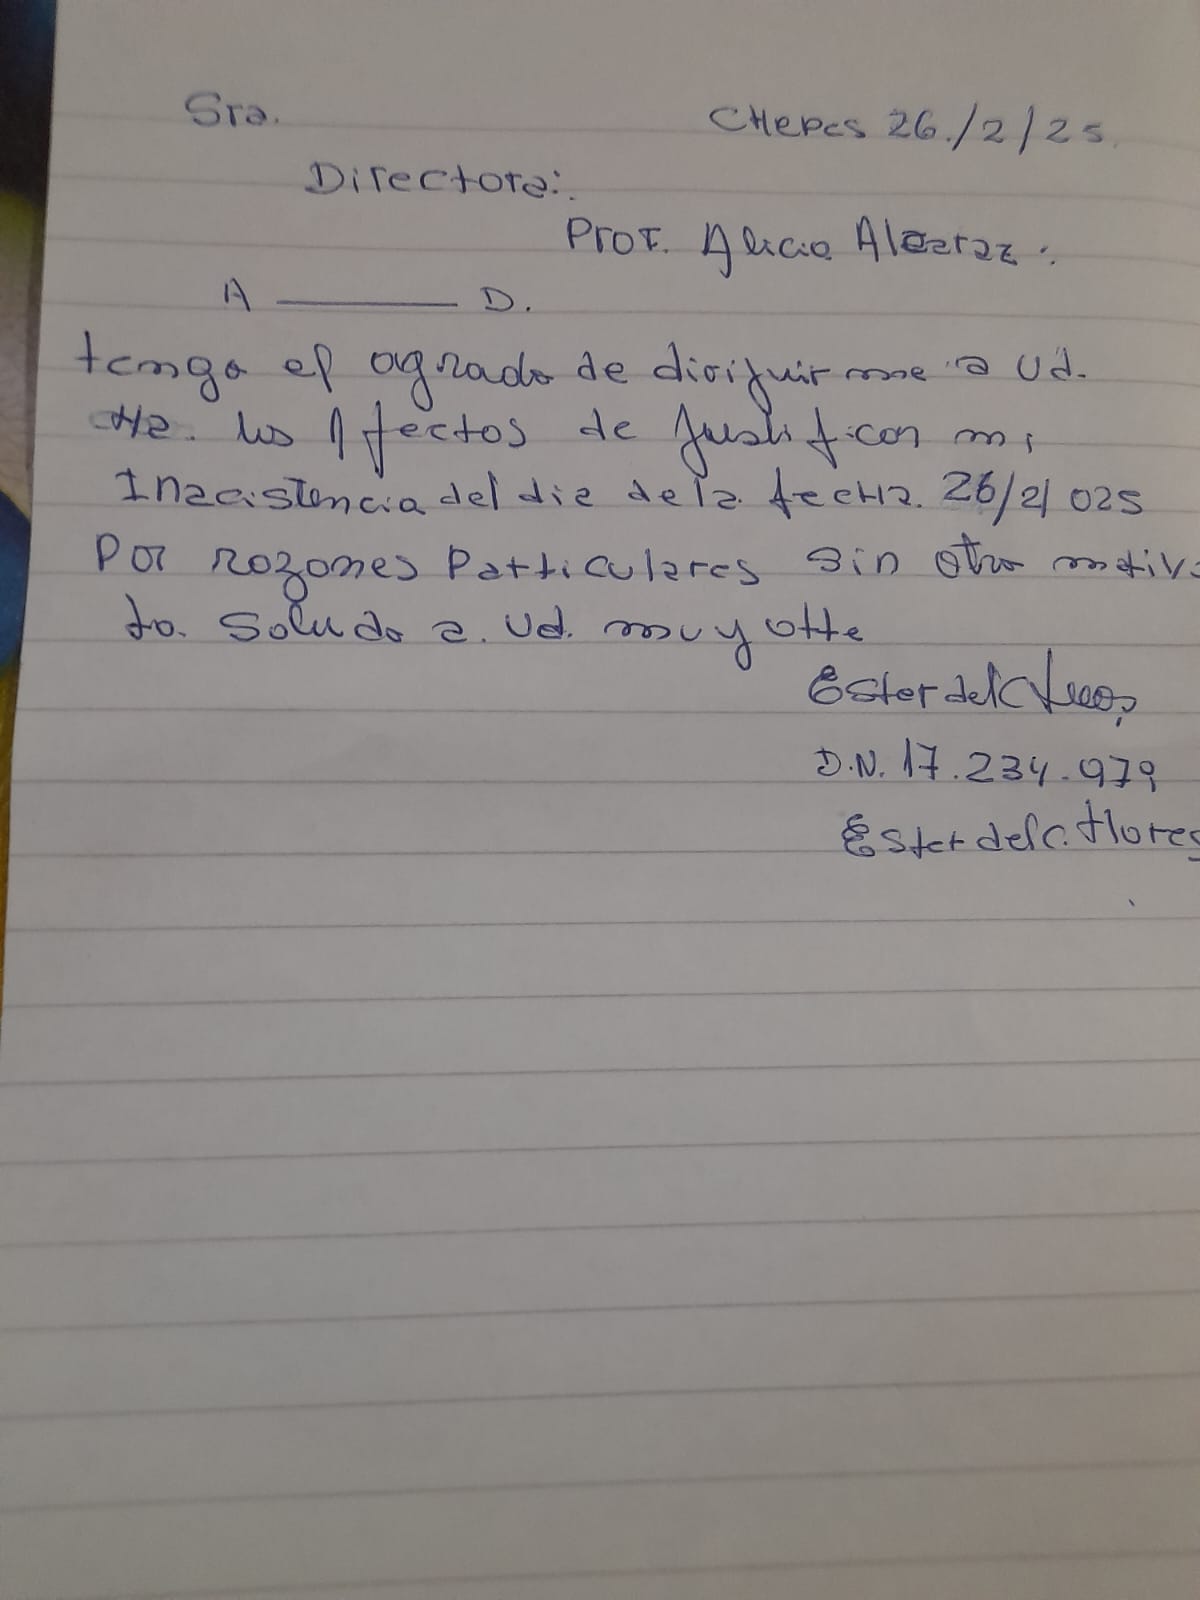 Sra. CHepes 26./2/25.
Directora:.
Prof. Alicia Alcaraz:.
A ——— D.
tengo el agrado de dirifuir me a Ud.
Ha. los Efectos de Justificar mi
Inacistencia del dia de la fecha. 26/2/025
Por razones Particulares sin otro motivo
to. Saludo a. Ud. muy atte
Ester del C
D.N. 17.234.979
Ester del C. Flores